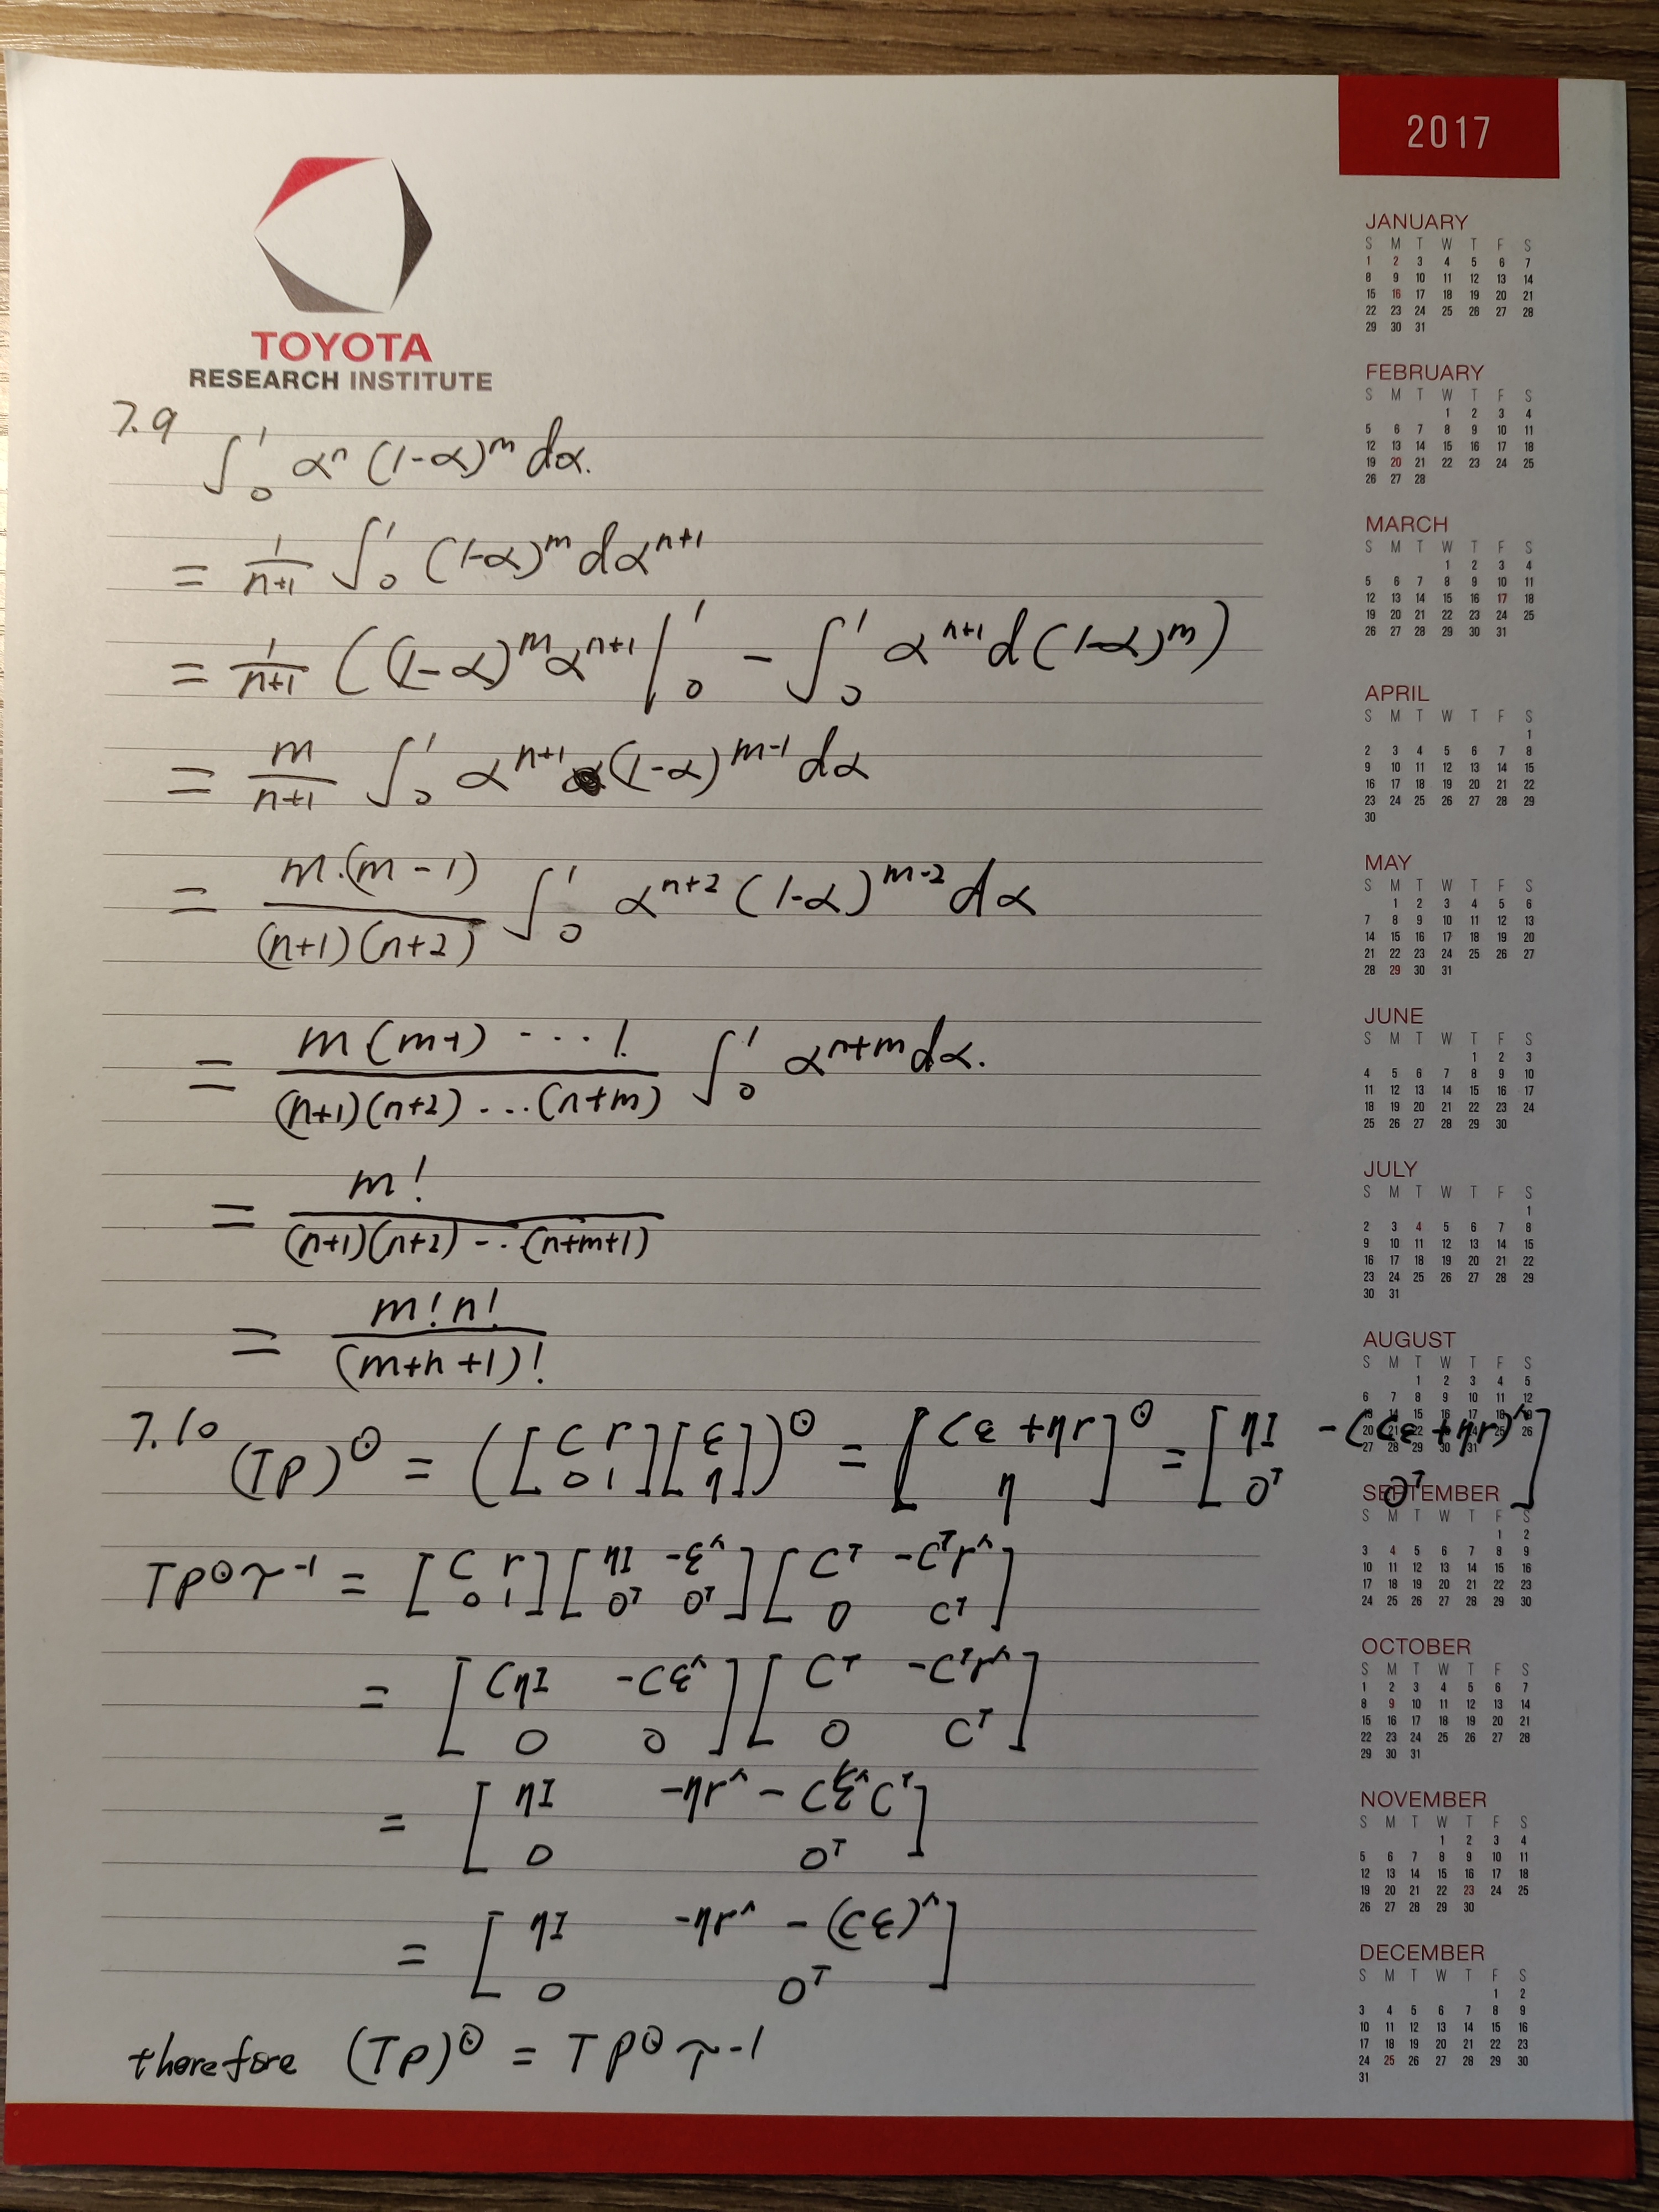 2017
TOYOTA
RESEARCH INSTITUTE
7.9
∫₀¹ αⁿ (1-α)ᵐ dα.
= 1/(n+1) ∫₀¹ (1-α)ᵐ dαⁿ⁺¹
= 1/(n+1) ((1-α)ᵐ αⁿ⁺¹ |₀¹ - ∫₀¹ αⁿ⁺¹ d(1-α)ᵐ)
= m/(n+1) ∫₀¹ αⁿ⁺¹ (1-α)ᵐ⁻¹ dα
= m·(m-1)/((n+1)(n+2)) ∫₀¹ αⁿ⁺² (1-α)ᵐ⁻² dα
= m·(m-1) ··· 1/((n+1)(n+2) ... (n+m)) ∫₀¹ αⁿ⁺ᵐ dα.
= m!/((n+1)(n+2) ... (n+m+1))
= m!n!/(m+n+1)!
7.10
(Tp)^⊙ = ([C r; 0 1][ε; η])^⊙ = [Cε + ηr; η]^⊙ = [ηI -(Cε + ηr)^∧; 0ᵀ 0ᵀ]
Tp^⊙ 𝒯⁻¹ = [C r; 0 1][ηI -ε^∧; 0ᵀ 0ᵀ][Cᵀ -Cᵀr^∧; 0 Cᵀ]
= [CηI -Cε^∧; 0 0][Cᵀ -Cᵀr^∧; 0 Cᵀ]
= [ηI -ηr^∧ - Cε^∧Cᵀ; 0 0ᵀ]
= [ηI -ηr^∧ - (Cε)^∧; 0 0ᵀ]
therefore (Tp)^⊙ = Tp^⊙ 𝒯⁻¹
JANUARY
S M T W T F S
1 2 3 4 5 6 7
8 9 10 11 12 13 14
15 16 17 18 19 20 21
22 23 24 25 26 27 28
29 30 31
FEBRUARY
S M T W T F S
1 2 3 4
5 6 7 8 9 10 11
12 13 14 15 16 17 18
19 20 21 22 23 24 25
26 27 28
MARCH
S M T W T F S
1 2 3 4
5 6 7 8 9 10 11
12 13 14 15 16 17 18
19 20 21 22 23 24 25
26 27 28 29 30 31
APRIL
S M T W T F S
1
2 3 4 5 6 7 8
9 10 11 12 13 14 15
16 17 18 19 20 21 22
23 24 25 26 27 28 29
30
MAY
S M T W T F S
1 2 3 4 5 6
7 8 9 10 11 12 13
14 15 16 17 18 19 20
21 22 23 24 25 26 27
28 29 30 31
JUNE
S M T W T F S
1 2 3
4 5 6 7 8 9 10
11 12 13 14 15 16 17
18 19 20 21 22 23 24
25 26 27 28 29 30
JULY
S M T W T F S
1
2 3 4 5 6 7 8
9 10 11 12 13 14 15
16 17 18 19 20 21 22
23 24 25 26 27 28 29
30 31
AUGUST
S M T W T F S
1 2 3 4 5
6 7 8 9 10 11 12
13 14 15 16 17 18 19
20 21 22 23 24 25 26
27 28 29 30 31
SEPTEMBER
S M T W T F S
1 2
3 4 5 6 7 8 9
10 11 12 13 14 15 16
17 18 19 20 21 22 23
24 25 26 27 28 29 30
OCTOBER
S M T W T F S
1 2 3 4 5 6 7
8 9 10 11 12 13 14
15 16 17 18 19 20 21
22 23 24 25 26 27 28
29 30 31
NOVEMBER
S M T W T F S
1 2 3 4
5 6 7 8 9 10 11
12 13 14 15 16 17 18
19 20 21 22 23 24 25
26 27 28 29 30
DECEMBER
S M T W T F S
1 2
3 4 5 6 7 8 9
10 11 12 13 14 15 16
17 18 19 20 21 22 23
24 25 26 27 28 29 30
31